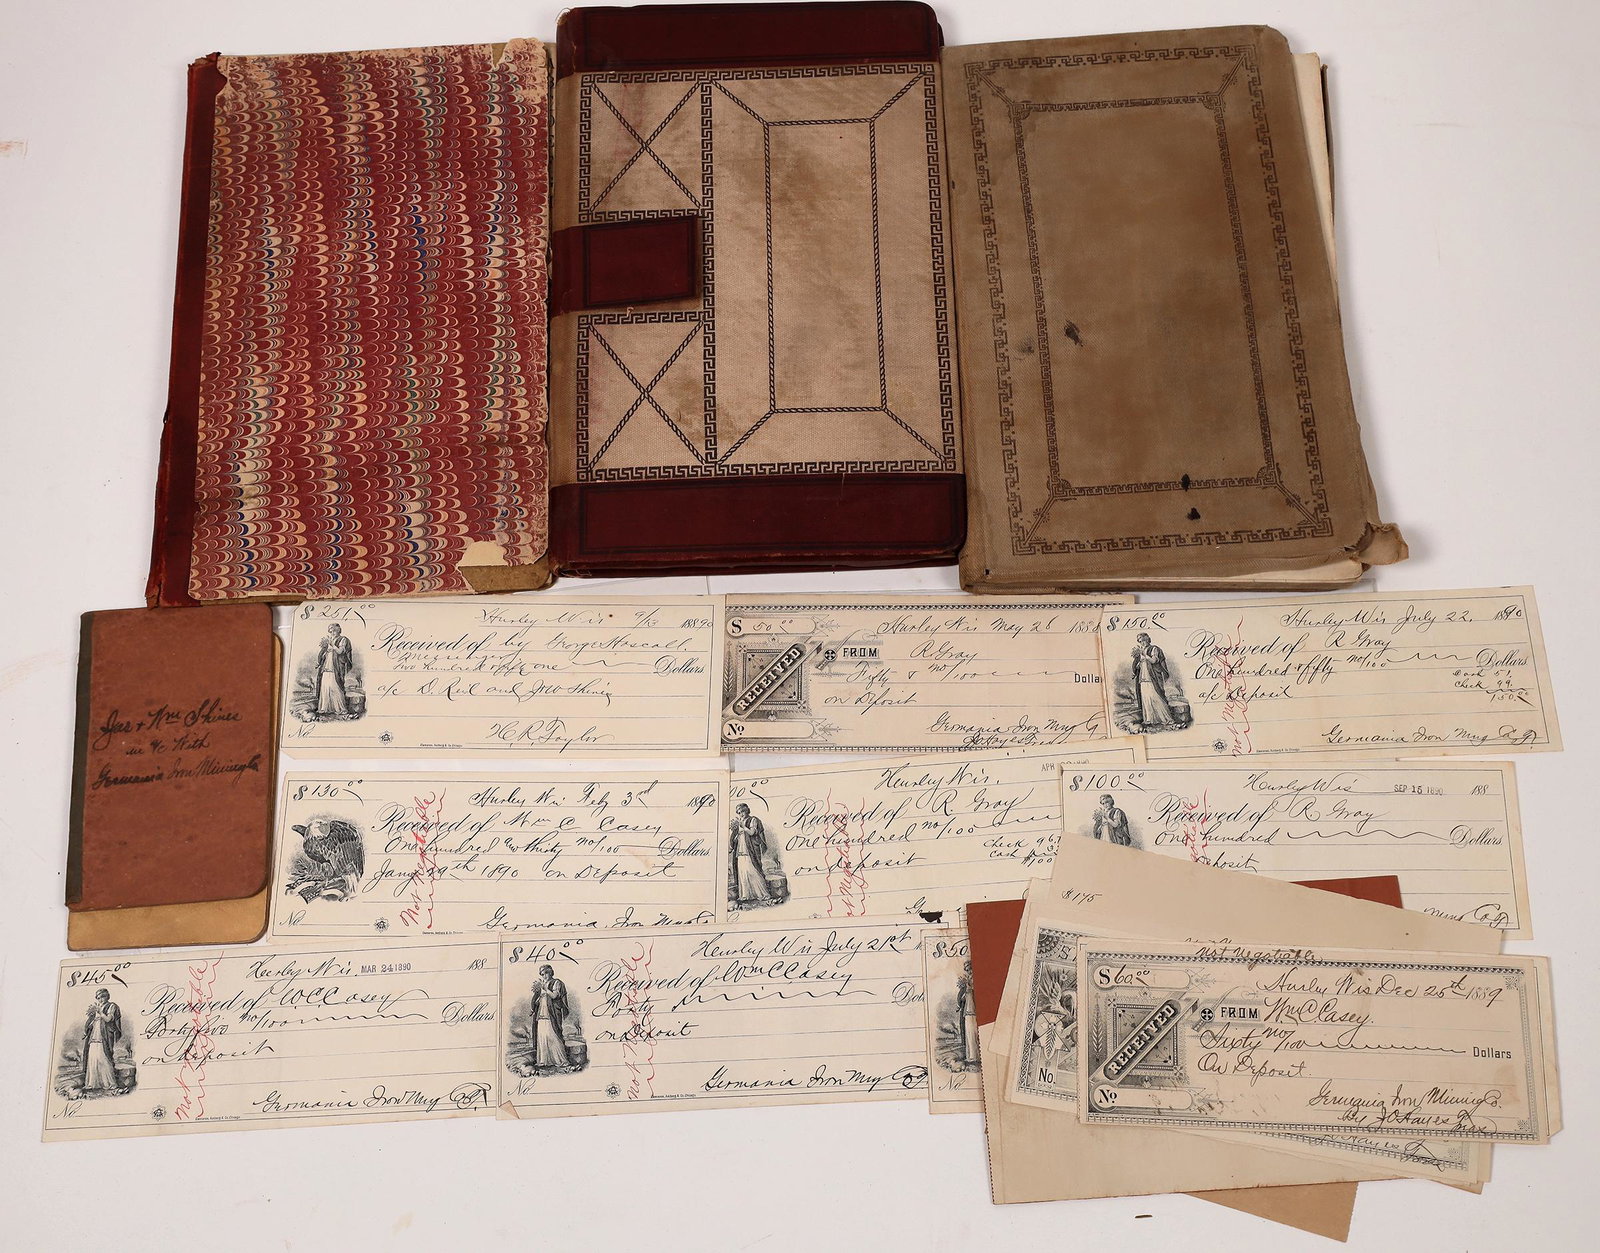 Jas & Wm Shines
in a/c With
Germania Iron Mining Co
$ 251.00
Hurley Wis 9/13 1890
Received of by George Hascall
Two hundred & fifty one Dollars
a/c D. Reid and Jno Shine
H. R. Taylor
$ 50.00
Hurley Wis May 26 188
RECEIVED
FROM
R Gray
Fifty & no/100 Dolla
on Deposit
No
Germania Iron Mng Co
JC Hayes Treas
$ 150.00
Hurley Wis July 22. 1890
Received of R Gray
One hundred & fifty no/100 Dollars
a/c Deposit
Cash 51.
check 99.
150.00
Not Negotiable
Germania Iron Mng Co
$ 130.00
Hurley Wis Feby 3rd 1890
Received of Wm C Casey
One hundred and thirty no/100 Dollars
Jany 29th 1890 on Deposit
Not Negotiable
No
Germania Iron Mng Co
00.00
Hurley Wis. APR 1890
Received of R Gray
One hundred no/100
on deposit
Check 967
Cash
Not Negotiable
$ 100.00
Hurley Wis SEP 15 1890 188
Received of R Gray
One hundred Dollars
eposit
Mng Co
$ 45.00
Hurley Wis MAR 24 1890 188
Received of W C Casey
Forty five no/100 Dollars
on deposit
Not Negotiable
No
Germania Iron Mng Co
$ 40.00
Hurley Wis July 21st
Received of Wm C Casey
Forty & Do
on Deposit
Not Negotiable
No
Germania Iron Mng Co
$ 50
$175
No.
Not Negotiable
$ 60.00
Hurley Wis Dec 26th 1889
RECEIVED
FROM
Wm C Casey.
Sixty no/100 Dollars
On Deposit
No
Germania Iron Mining Co.
By JC Hayes Treas
Hayes Treas